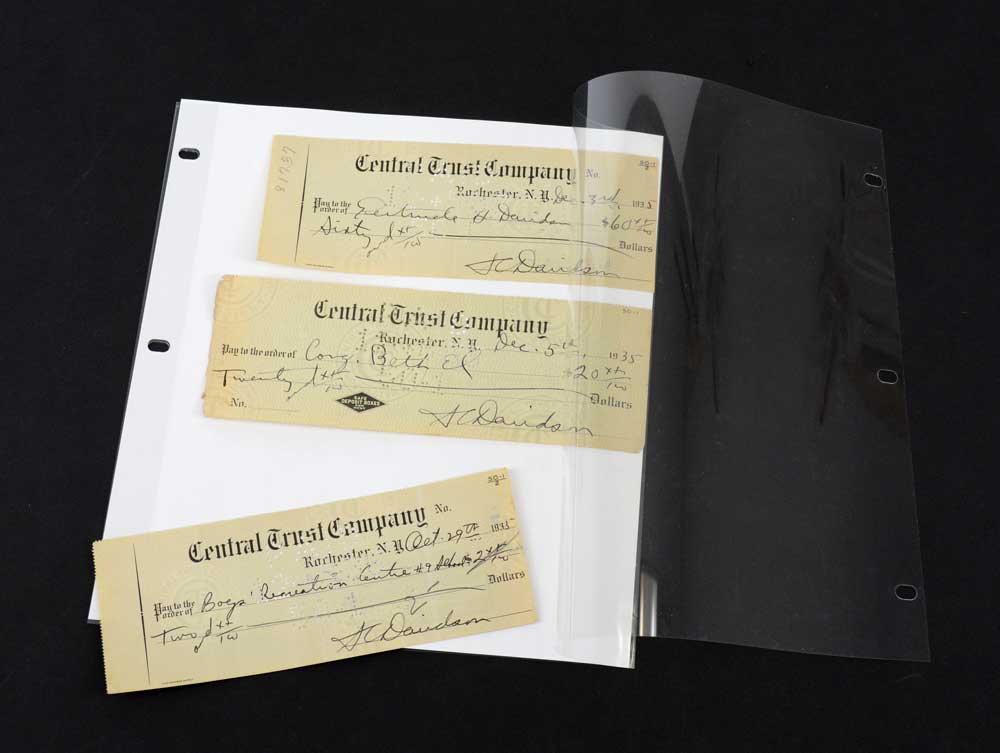 81737
50-1
Central Trust Company No.
Rochester, N.Y. Dec. 3rd, 1935
Pay to the order of Gertrude H Davidson $60 xx/100
Sixty & xx/100 Dollars
H C Davidson
50-1
Central Trust Company
Rochester, N.Y. Dec. 5th, 1935
Pay to the order of Cong. Beth El $20 xx/100
Twenty & xx/100 Dollars
No.
SAFE
DEPOSIT BOXES
H C Davidson
50-1
2
Central Trust Company No.
Rochester, N.Y. Oct. 29th 1935
Pay to the order of Boys' Recreation Centre #9 School $2 xx/100
Two & xx/100 Dollars
H C Davidson